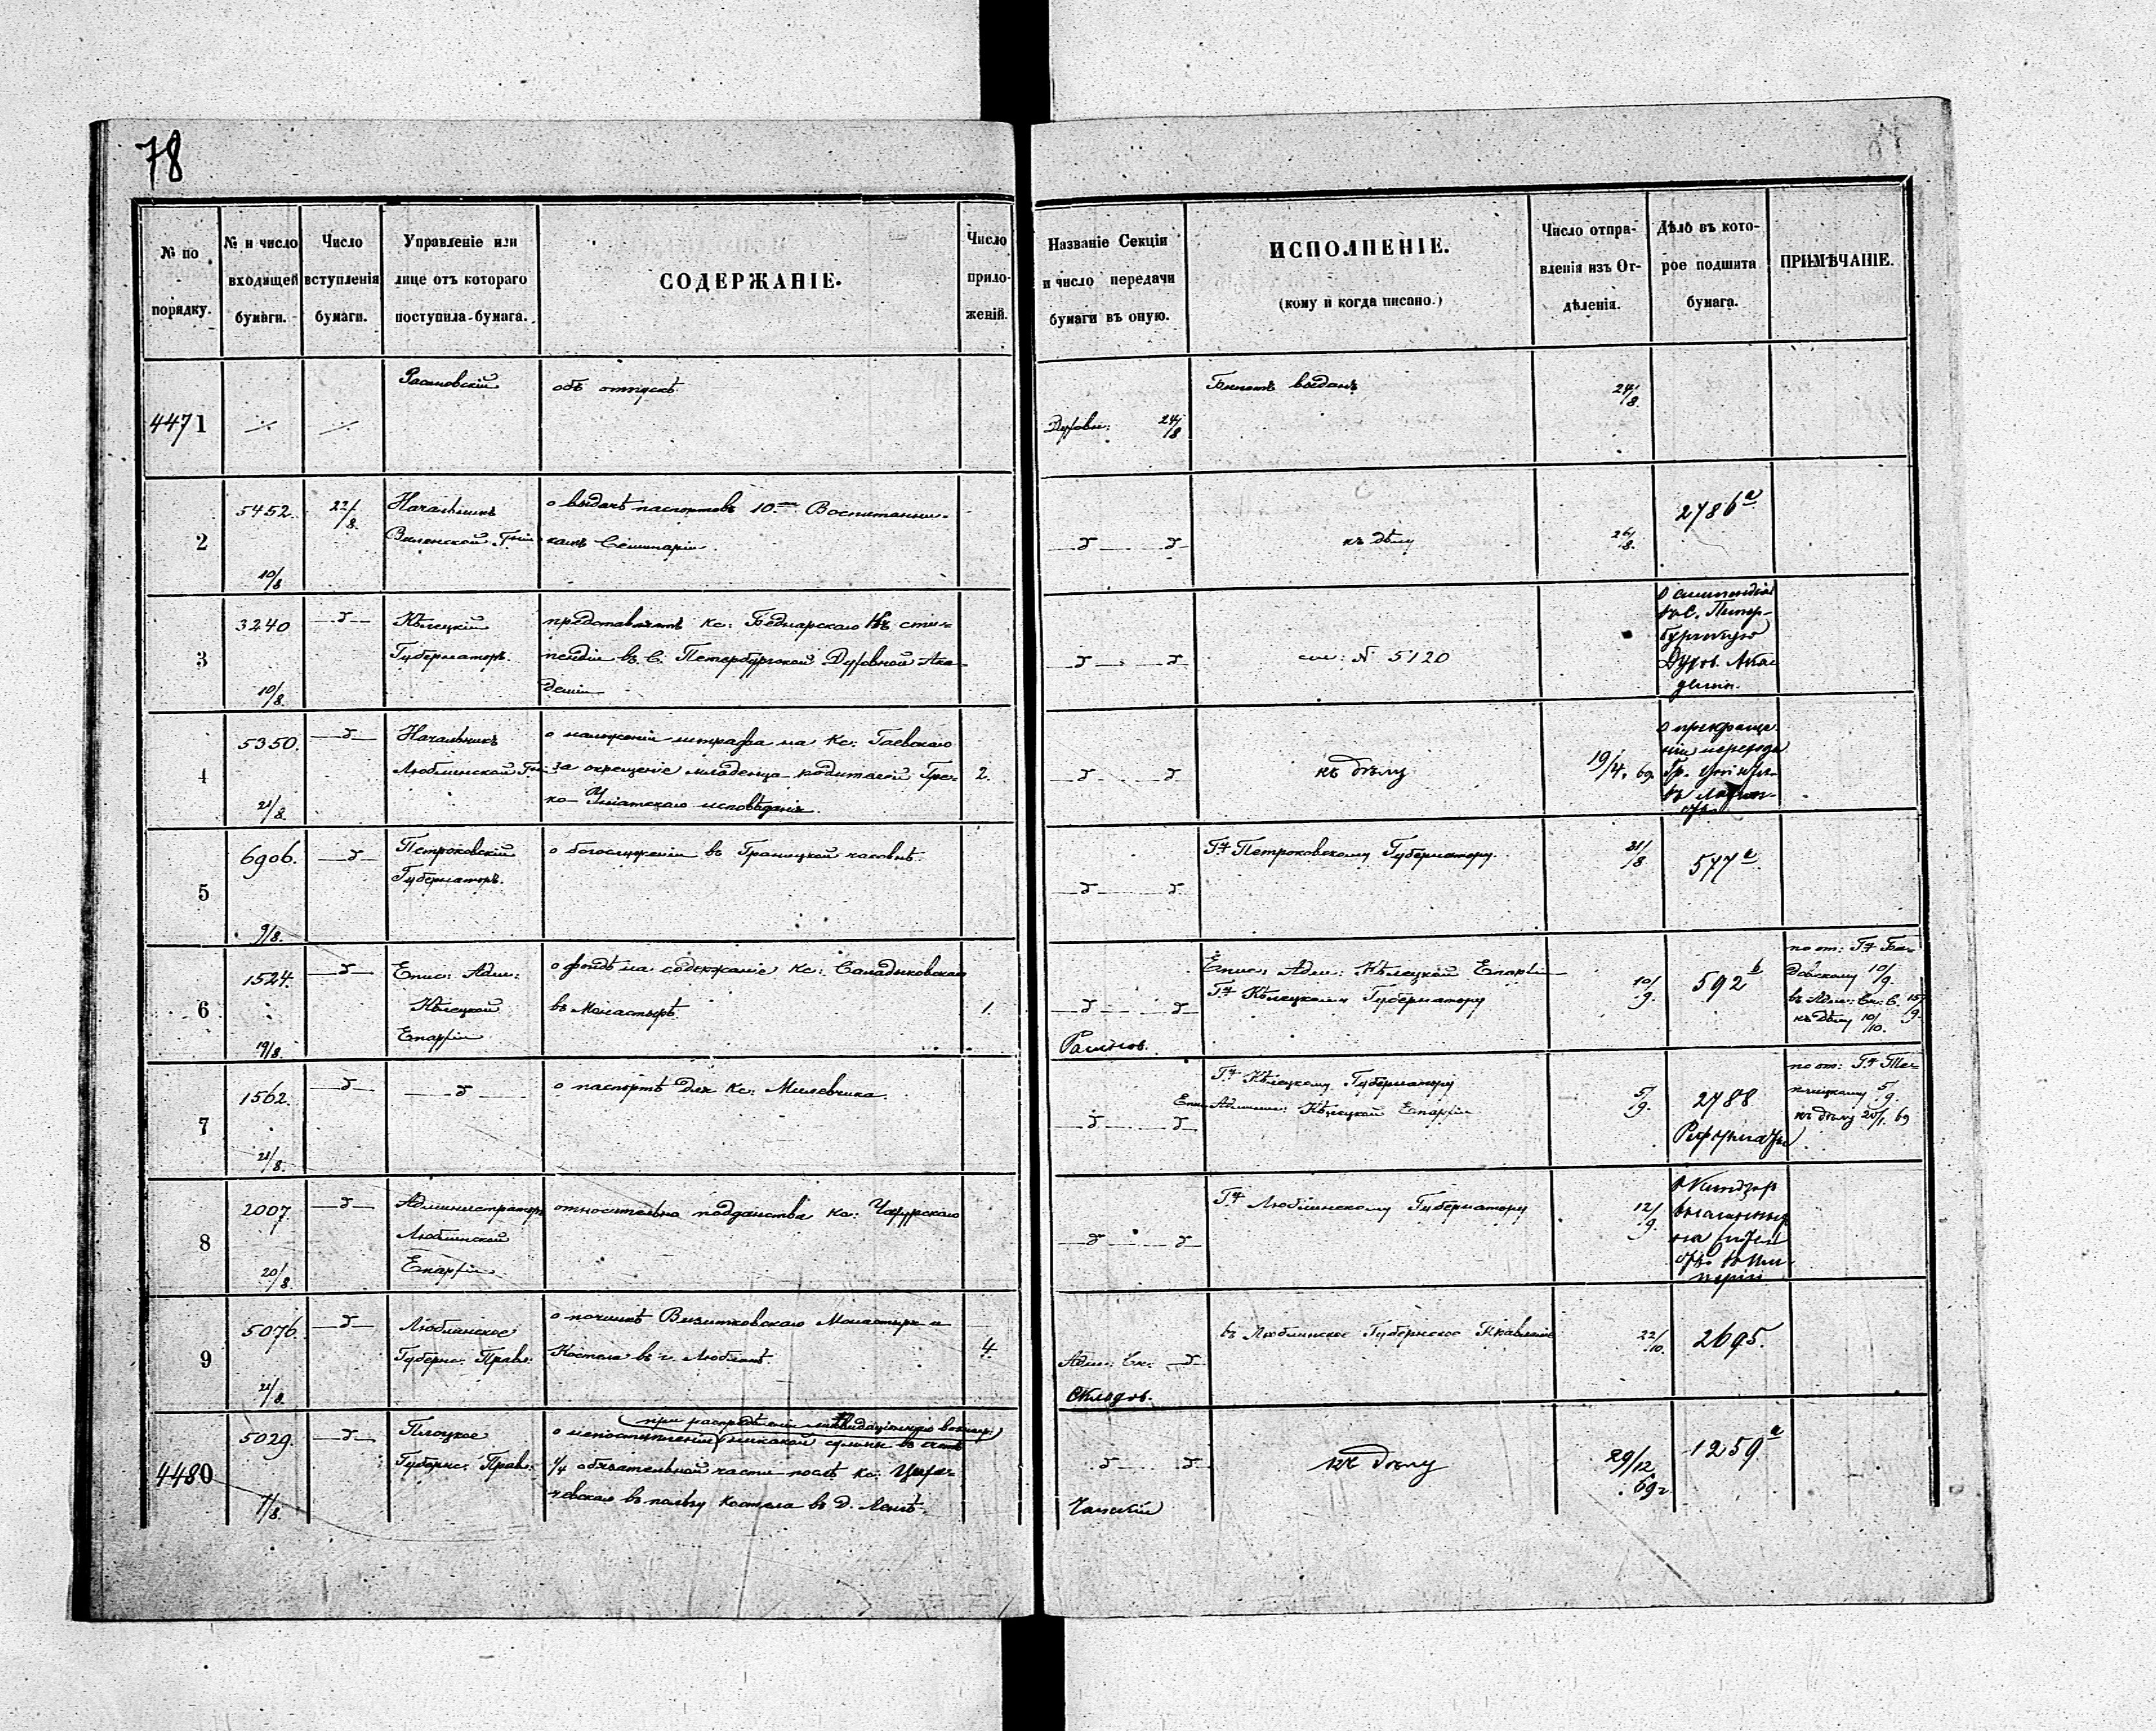 78
№ по порядку.
№ и число входящей бумаги.
Число вступленія бумаги.
Управленіе или лице отъ котораго поступила бумага.
СОДЕРЖАНІЕ.
Число приложеній.
Названіе Секціи и число передачи бумаги въ оную.
ИСПОЛНЕНІЕ.
(кому и когда писано.)
Число отправленія изъ Отдѣленія.
Дѣло въ которое подшита бумага.
ПРИМѢЧАНІЕ.
4471
объ отпускѣ
Духовн: 24/8
Билетъ выданъ
24/8.
2
5452.
10/8
22/8.
Начальникъ
Виленской Гніи
о выдачѣ паспортовъ 10. Воспитанни-
камъ Семинаріи.
къ дѣлу
26/8.
2786 а
3
3240
10/8.
Кѣлецкій
Губернаторъ.
представляетъ Кс: Беднарскаго къ сти-
пендіи въ С. Петербургской Духовной Ака-
деміи
см: № 5120
о стипендіи
въ С. Петер-
бургскую
Духов. Ака
деміи.
4
5350.
21/8.
Начальникъ
Люблинской Гніи
о наложеніи штрафа на Кс: Гаевскаго
за окрещеніе младенца родителей Гре-
ко-Уніатскаго исповѣданія.
2.
къ дѣлу
19/4. 69.
о прекраще
ніи перехода
Гр. Уніятъ
въ Латин-
обр.
5
6906.
9/8.
Петроковскій
Губернаторъ.
о богослуженіи въ Границкой часовнѣ.
Г. Петроковскому Губернатору.
31/8
577 а.
6
1524.
19/8.
Епис: Адм:
Кѣлецкой
Епархіи
о фондѣ на содержаніе Кс:
въ Монастырѣ.
1.
Епис: Адм: Кѣлецкой Епархіи
Г. Кѣлецкому Губернатору
10/9.
592 b
по от: Г.
10/9.
въ Адм: Ск: С. 15/9.
къ дѣлу 10/10.
7
1562.
21/8.
о паспортѣ для Кс: Милевчика.
Г. Кѣлецкому Губернатору
Епис. Админис: Кѣлецкой Епархіи
5/9.
2788
по от: Г.
5/9.
къ дѣлу 20/1. 69
8
2007
20/8.
Администраторъ
Люблинской
Епархіи
относительно подданства Кс:
Г. Люблинскому Губернатору
12/9.
о Ксендзах
высланных
на жител
9
5076.
21/8.
Люблинское
Губерн: Правл:
о починкѣ Визитковскаго Монастыря и
Костела въ г. Люблинѣ.
4.
Адм: Ск:
Складов.
въ Люблинское Губернское Правленіе
22/10.
2695.
4480
5029.
7/8.
Плоцкое
Губернс: Прав:
при распредѣленіи
о непоступленіи никакой суммы въ счетъ
1/4 обязательной части послѣ кс:
въ пользу костела въ д.
къ дѣлу
29/12
69 г.
1259 а